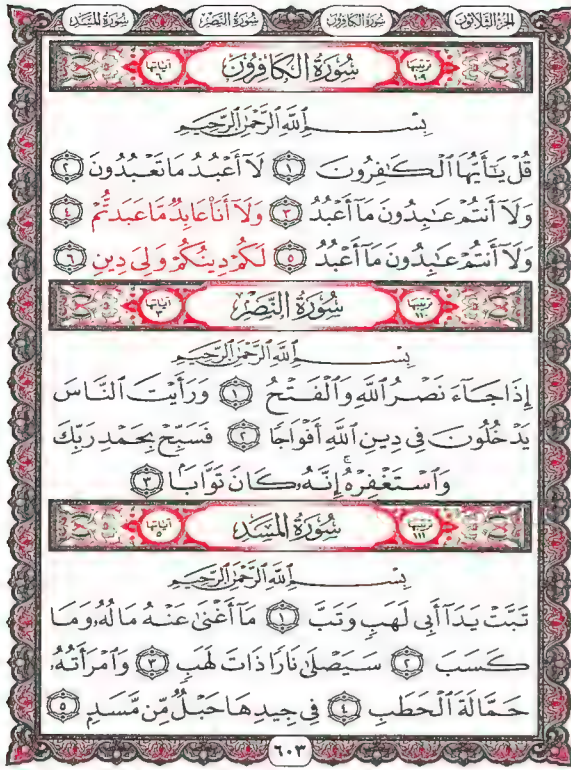 الجزء الثلاثون سورة الكافرون سورة النصر سورة المسد
ترتيبها ١٠٩ سُورَةُ الكَافِرُون آياتها ٦
بِسْمِ ٱللَّهِ ٱلرَّحْمَٰنِ ٱلرَّحِيمِ
قُلْ يَٰٓأَيُّهَا ٱلْكَٰفِرُونَ ١ لَآ أَعْبُدُ مَا تَعْبُدُونَ ٢
وَلَآ أَنتُمْ عَٰبِدُونَ مَآ أَعْبُدُ ٣ وَلَآ أَنَا۠ عَابِدٌ مَّا عَبَدتُّمْ ٤
وَلَآ أَنتُمْ عَٰبِدُونَ مَآ أَعْبُدُ ٥ لَكُمْ دِينُكُمْ وَلِىَ دِينِ ٦
ترتيبها ١١٠ سُورَةُ النَّصْر آياتها ٣
بِسْمِ ٱللَّهِ ٱلرَّحْمَٰنِ ٱلرَّحِيمِ
إِذَا جَآءَ نَصْرُ ٱللَّهِ وَٱلْفَتْحُ ١ وَرَأَيْتَ ٱلنَّاسَ
يَدْخُلُونَ فِى دِينِ ٱللَّهِ أَفْوَاجًا ٢ فَسَبِّحْ بِحَمْدِ رَبِّكَ
وَٱسْتَغْفِرْهُ ۚ إِنَّهُۥ كَانَ تَوَّابًۢا ٣
ترتيبها ١١١ سُورَةُ المَسَد آياتها ٥
بِسْمِ ٱللَّهِ ٱلرَّحْمَٰنِ ٱلرَّحِيمِ
تَبَّتْ يَدَآ أَبِى لَهَبٍ وَتَبَّ ١ مَآ أَغْنَىٰ عَنْهُ مَالُهُۥ وَمَا
كَسَبَ ٢ سَيَصْلَىٰ نَارًا ذَاتَ لَهَبٍ ٣ وَٱمْرَأَتُهُۥ
حَمَّالَةَ ٱلْحَطَبِ ٤ فِى جِيدِهَا حَبْلٌ مِّن مَّسَدٍۭ ٥
٦٠٣